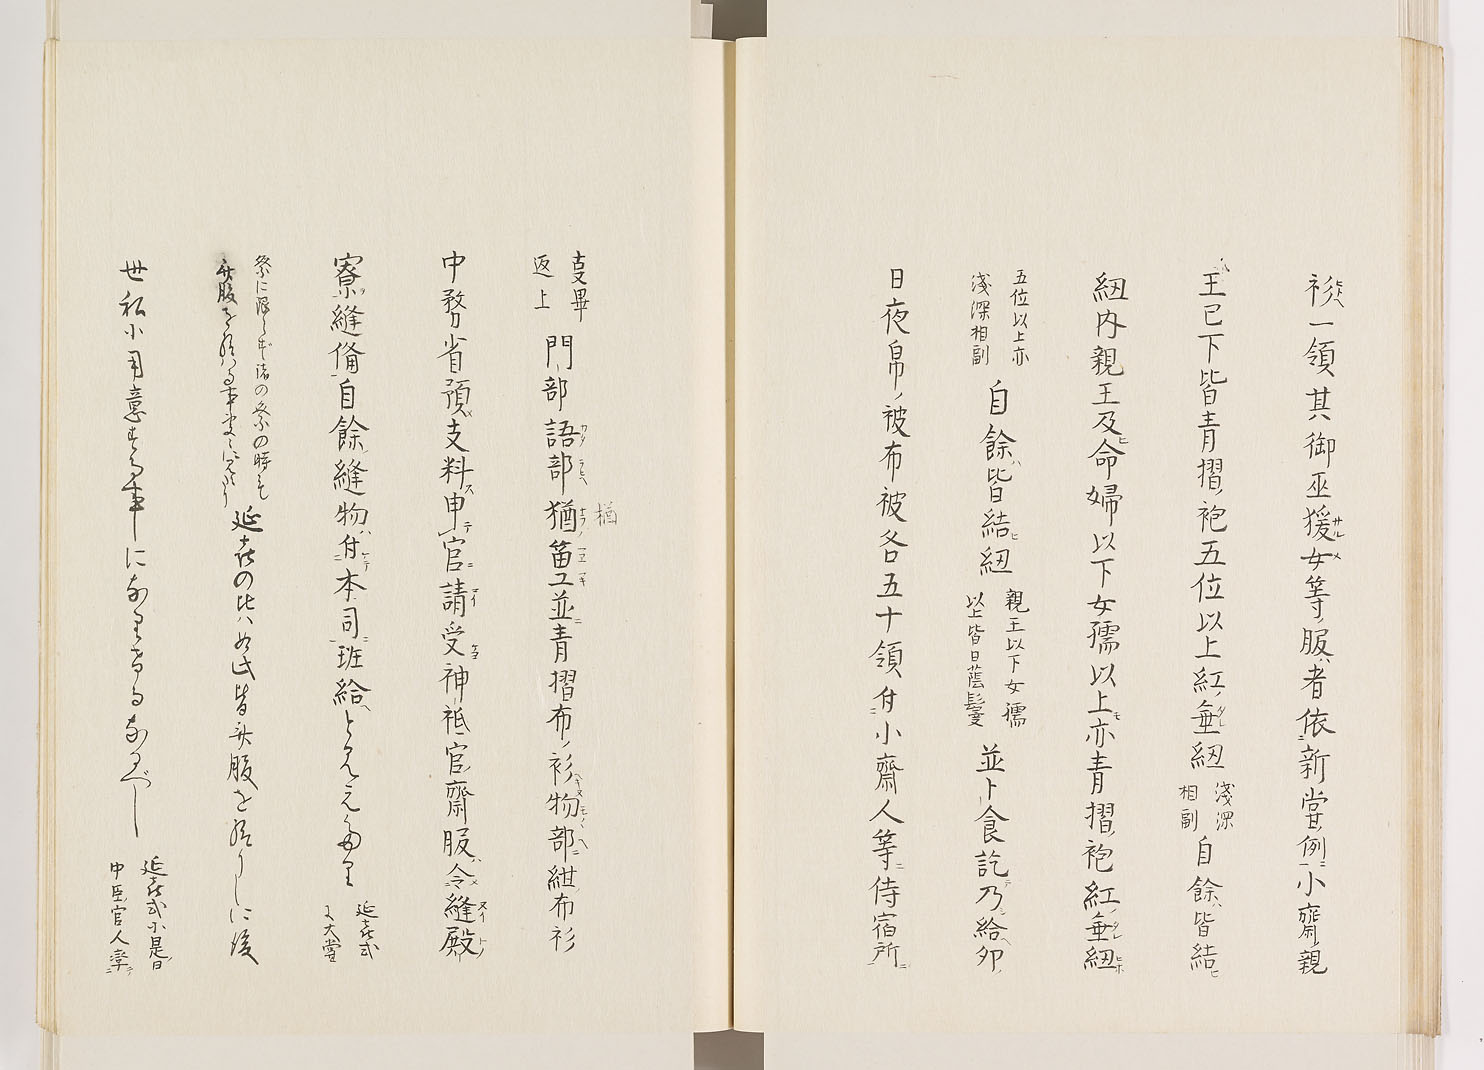 一領其御巫猨女等服者依新嘗例小齋親
王已下皆青摺袍五位以上紅垂紐
淺深
相副
自餘皆結
紐内親王及命婦以下女孺以上亦青摺袍紅垂紐
五位以上亦
淺深相副
自餘皆結紐
親王以下女孺
以上皆日蔭鬘
並卜食訖乃給卯
日夜帛被布被各五十領付小齋人等侍宿所
事畢
返上
門部語部楢笛工並青摺布衫物部紺布衫
楢
中務省預支料申官請受神祗官齋服令縫殿
寮縫備自餘縫物付本司班給と見えたり
延喜式
大嘗
祭に限らず諸の祭の時も
延喜の比は如此皆齋服を給りしに後
世私に用意する事になりたるなるべし
延喜式小是日
中臣官人率